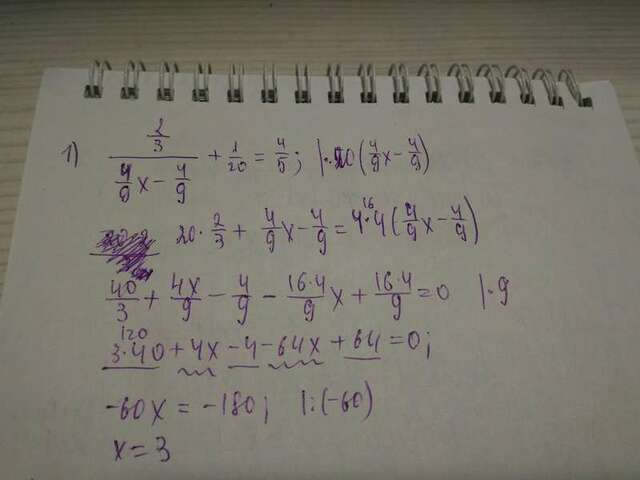 1) (2/3)/(4/9 x - 4/9) + 1/20 = 4/5; |·20(4/9 x - 4/9)
20·2/3 + 4/9 x - 4/9 = 4·4(4/9 x - 4/9)
16
40/3 + 4x/9 - 4/9 - 16·4/9 x + 16·4/9 = 0 |·9
120
3·40 + 4x - 4 - 64x + 64 = 0;
-60x = -180; |:(-60)
x = 3